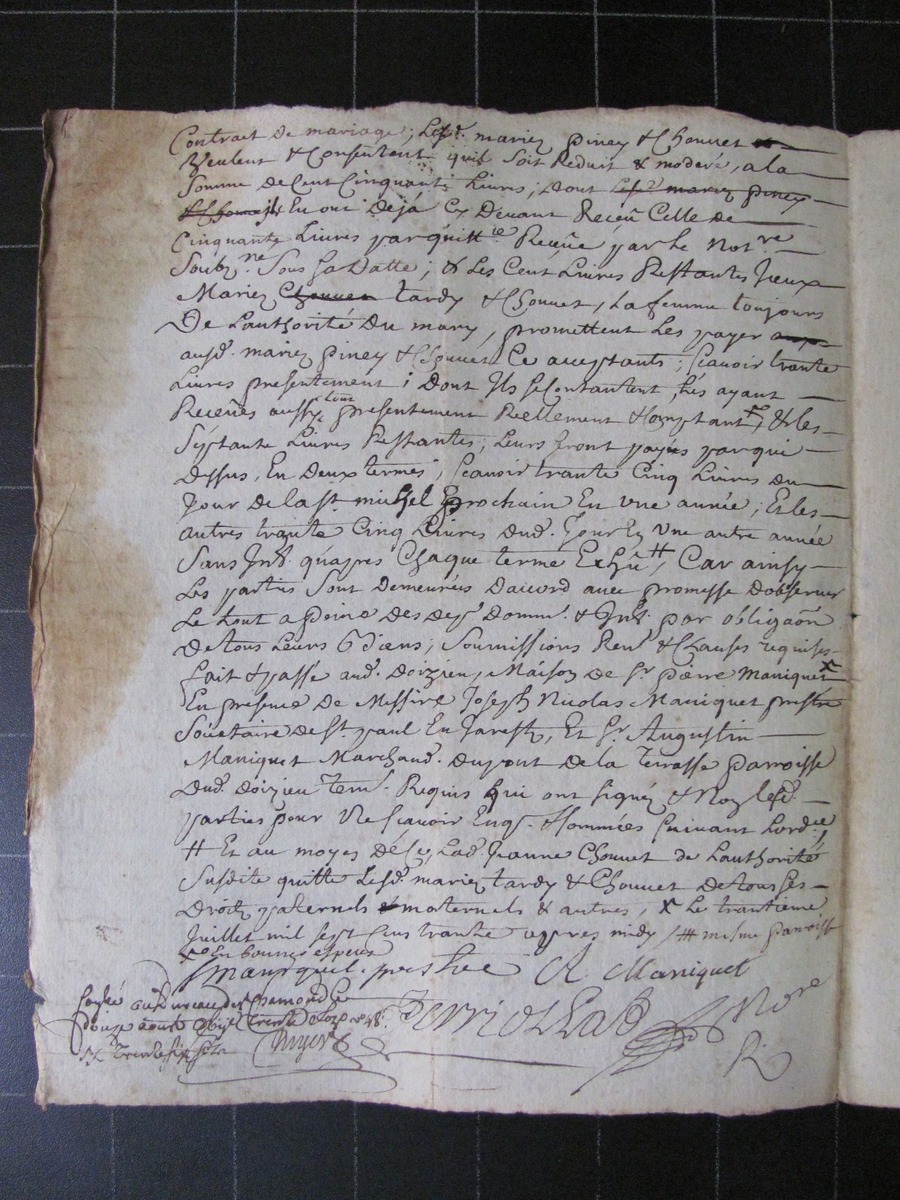 Contract de mariage; lesd. mariez piney & Chouvet
Veulent & Consentent quil soit Reduit & moderé, a la
Somme de Cent Cinquante Livres; dont lesd. mariez piney
& Chouvet En ont Deja Cy Devant Receu Celle de
Cinquante Livres par quitt.ce Receüe par le Not.re
Soub.ne Sous sa Datte; & Les Cent Livres Restantes Iceux
Mariez Chouvet tardy & Chouvet, La femme toujours
De Lauthorité Du mary, promettent Les payer
ausd. mariez piney & Chouvet Ce acceptants; scavoir trante
Livres presentement; Dont Ils se Contantent, Les ayant
Receües aussy tout presentement Reellement & Comptant, & les
Septante Livres Restantes; Leurs seront payés par qui
dessus, En Deux termes, scavoir trante Cinq Livres du
Jour de la st. michel prochain En une année; Et les
autres trante Cinq Livres dud. Jour En Une autre année
Sans Int. quapres Chaque terme Echeu #, Car ainsy
Les parties Sont Demeurées Daccord avec promesse Dobserver
Le tout a peine des desp. Domm. & Int. par obligaõn
De tous Leurs Biens, Soumissions Ren.s & Clauses requises
fait & passé aud. Doizieu, Maison de sr. pierre maniquet x
En presence de Messire Joseph Nicolas Maniquet prestre
Societaire de st. paul En Jarest, Et Sr. Augustin
Maniquet Marchand. du pont de la terrasse parroisse
Dud. doizieu tem.s Requis qui ont signéz & Non lesd.
parties pour Ne scavoir Enq. & sommées suivant Lord.ce
# Et au moyen de Ce, Lad. Jeanne Chouvet de Lauthorité
Susdite quitte lesd. mariez tardy & Chouvet De tous ses
Droits paternels & maternels & autres, x Le trantieme
Juillet mil sept Cens trante apres midy /# mesme parroisse
En bources especes
maniquet prestre A. Maniquet
Ferriol Lad Nore
R.
au Bureau de st Chamond le
douze aoust